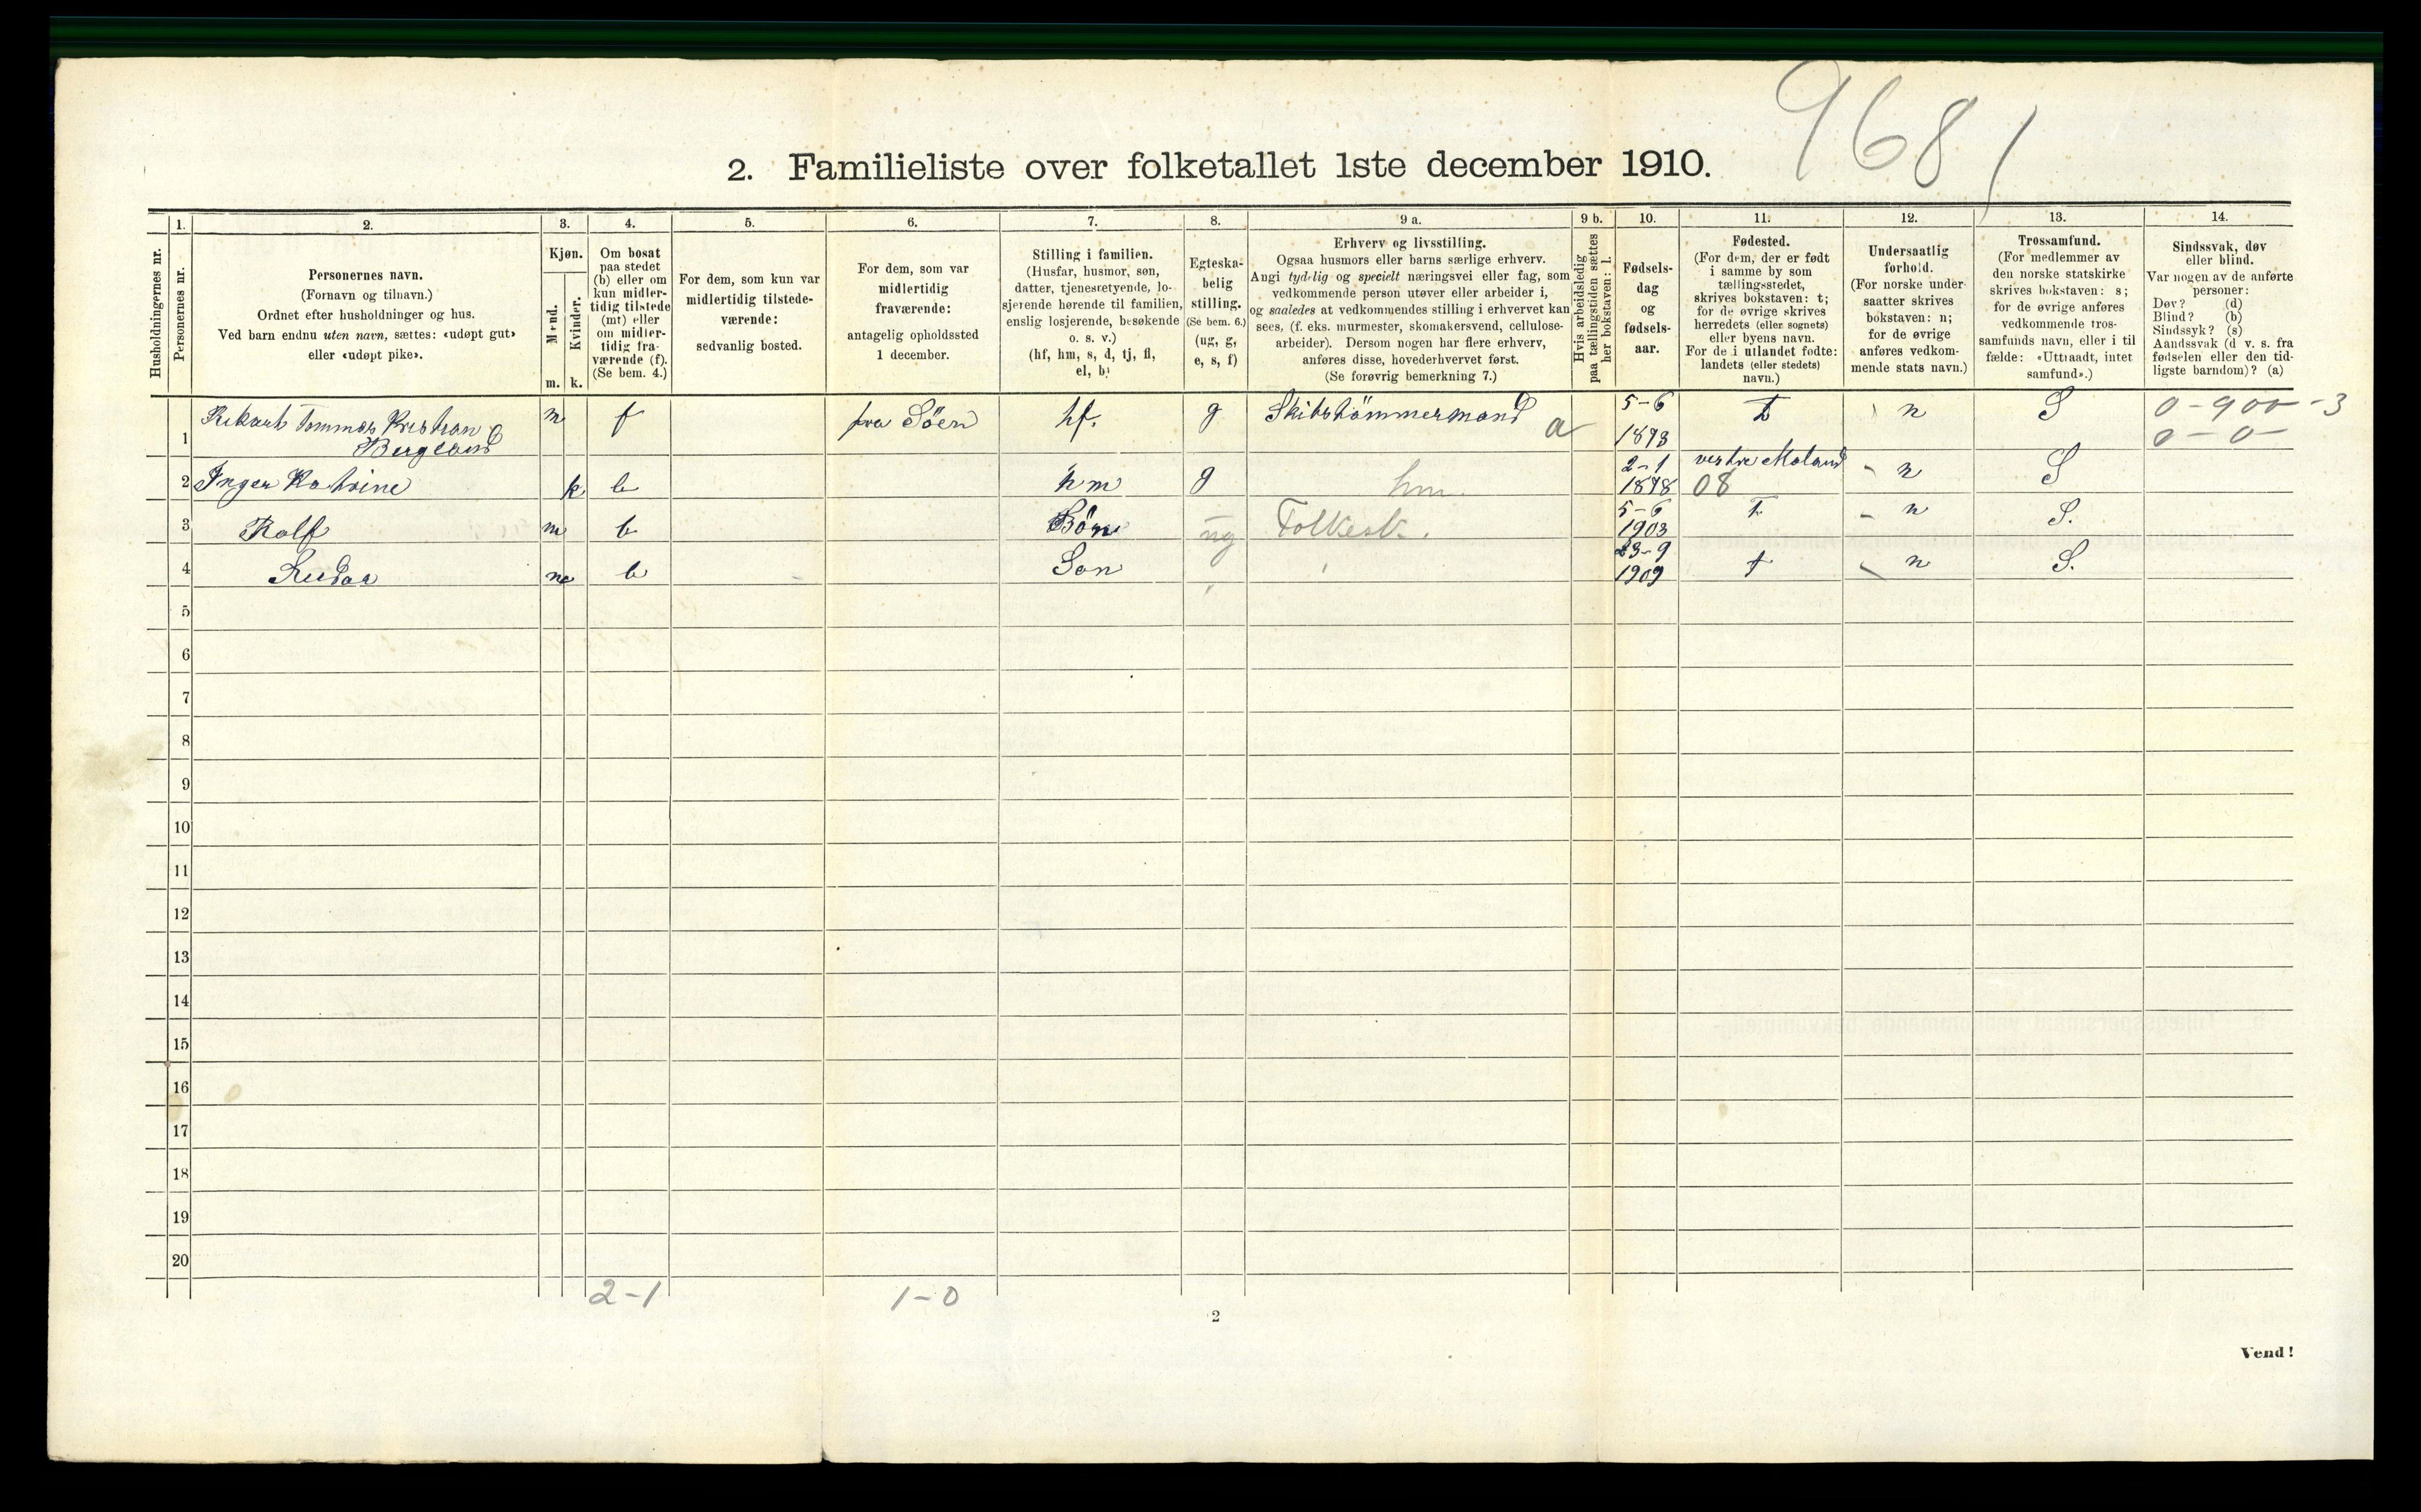 9681
2. Familieliste over folketallet 1ste december 1910.
1. 2. 3. 4. 5. 6. 7. 8. 9 a. 9 b. 10. 11. 12. 13. 14.
Husholdningernes nr.
Personernes nr.
Personernes navn.
(Fornavn og tilnavn.)
Ordnet efter husholdninger og hus.
Ved barn endnu uten navn, sættes: «udøpt gut»
eller «udøpt pike».
Kjøn.
Mænd.
Kvinder.
m. k.
Om bosat
paa stedet
(b) eller om
kun midler-
tidig tilstede
(mt) eller
om midler-
tidig fra-
værende (f).
(Se bem. 4.)
For dem, som kun var
midlertidig tilstede-
værende:
sedvanlig bosted.
For dem, som var
midlertidig
fraværende:
antagelig opholdssted
1 december.
Stilling i familien.
(Husfar, husmor, søn,
datter, tjenestetyende, lo-
sjerende hørende til familien,
enslig losjerende, besøkende
o. s. v.)
(hf, hm, s, d, tj, fl,
el, b)
Egteska-
belig
stilling.
(Se bem. 6.)
(ug, g,
e, s, f)
Erhverv og livsstilling.
Ogsaa husmors eller barns særlige erhverv.
Angi tydelig og specielt næringsvei eller fag, som
vedkommende person utøver eller arbeider i,
og saaledes at vedkommendes stilling i erhvervet kan
sees, (f. eks. murmester, skomakersvend, cellulose-
arbeider). Dersom nogen har flere erhverv,
anføres disse, hovederhvervet først.
(Se forøvrig bemerkning 7.)
Hvis arbeidsledig
paa tællingstiden sættes
her bokstaven: l.
Fødsels-
dag
og
fødsels-
aar.
Fødested.
(For dem, der er født
i samme by som
tællingsstedet,
skrives bokstaven: t;
for de øvrige skrives
herredets (eller sognets)
eller byens navn.
For de i utlandet fødte:
landets (eller stedets)
navn.)
Undersaatlig
forhold.
(For norske under-
saatter skrives
bokstaven: n;
for de øvrige
anføres vedkom-
mende stats navn.)
Trossamfund.
(For medlemmer av
den norske statskirke
skrives bokstaven: s;
for de øvrige anføres
vedkommende tros-
samfunds navn, eller i til
fælde: «Uttraadt, intet
samfund».)
Sindssvak, døv
eller blind.
Var nogen av de anførte
personer:
Døv? (d)
Blind? (b)
Sindssyk? (s)
Aandssvak (d v. s. fra
fødselen eller den tid-
ligste barndom)? (a)
1 Rikart Tommas Kristian Bergland m f paa Söen hf. g Skibstömmermand a 5-6 1873 t n S 0-900-3
0-0-
2 Inger Katrine k b hm g hm. 2-1 1878 vestre Moland 08 - n S
3 Rolf m b Sön ug Folkesk. 5-6 1903 t - n S.
4 Reidar m b Son 23-9 1909 t n S.
5
6
7
8
9
10
11
12
13
14
15
16
17
18
19
20
2-1 1-0
2
Vend!